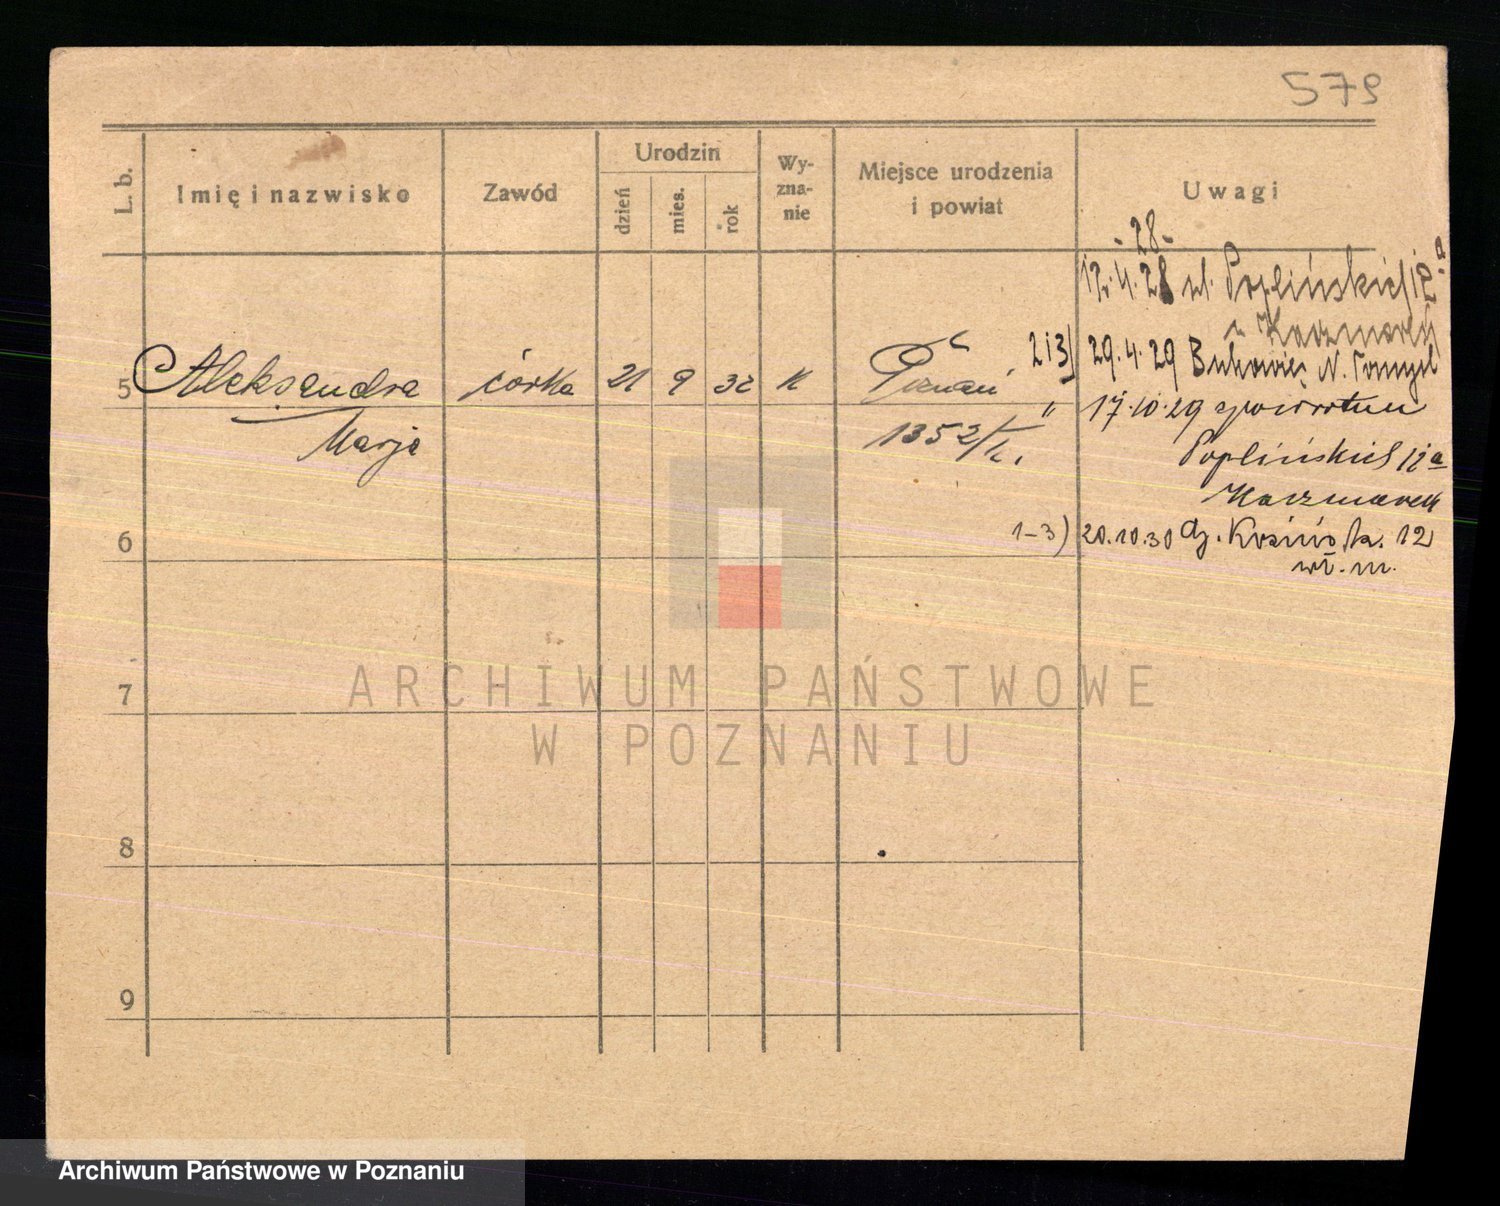 579
L. b.
Imię i nazwisko
Zawód
Urodzin
dzień
mies.
rok
Wy-
zna-
nie
Miejsce urodzenia
i powiat
Uwagi
-28-
12.4.28 Poplińskich 12a
Kaczmarek
2 i 3) 29.4.29 Bukowiec N. Tomyśl
5 Aleksandra córka 21 9 32 k Poznań
" 17.10.29 zpowrotem
Marja
1352/
Poplińskich 12a
Kaczmarek
1-3) 20.10.30 12
wł. m.
6
7
8
9
ARCHIWUM PAŃSTWOWE
W POZNANIU
Archiwum Państwowe w Poznaniu